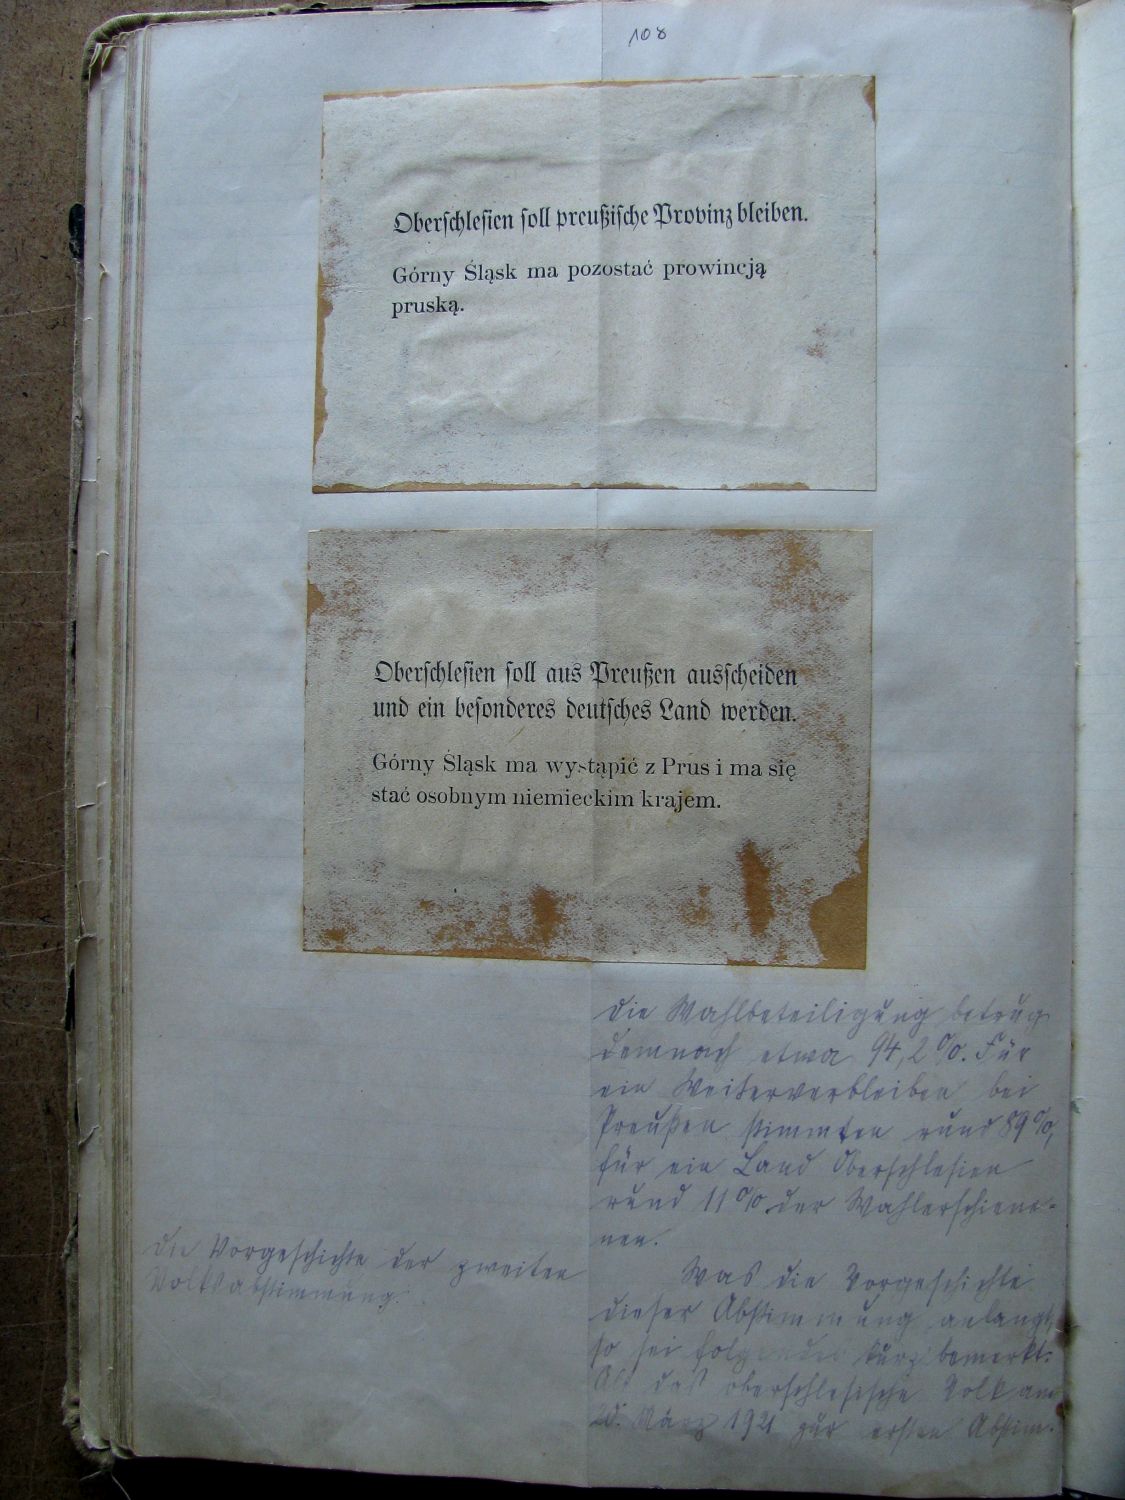 108
Oberschlesien soll preußische Provinz bleiben.
Górny Śląsk ma pozostać prowincją
pruską.
Oberschlesien soll aus Preußen ausscheiden
und ein besonderes deutsches Land werden.
Górny Śląsk ma wystąpić z Prus i ma się
stać osobnym niemieckim krajem.
Die Wahlbeteiligung betrug
demnach etwa 94,2%. Für
ein Weiterverbleiben bei
Preußen stimmten rund 89%,
für ein Land Oberschlesien
rund 11% der Wahlerschiene-
nen.
Die Vorgeschichte der zweiten
Volksabstimmung.
Was die Vorgeschichte
dieser Abstimmung anlangt,
so sei folgendes kurz bemerkt:
Als das oberschlesische Volk am
20. März 1921 zur ersten Abstim-